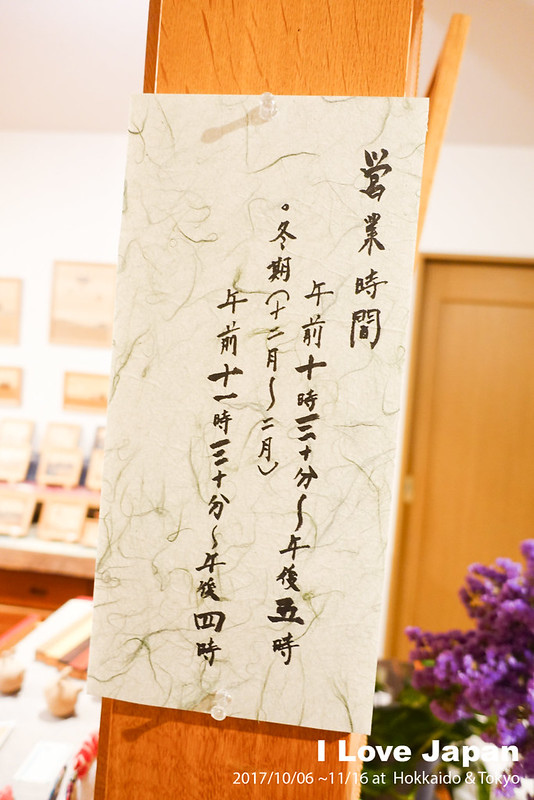 営業時間
午前十時三十分～午後五時
。冬期(十二月～二月)
午前十一時三十分～午後四時
I Love Japan
2017/10/06 ~11/16 at Hokkaido & Tokyo